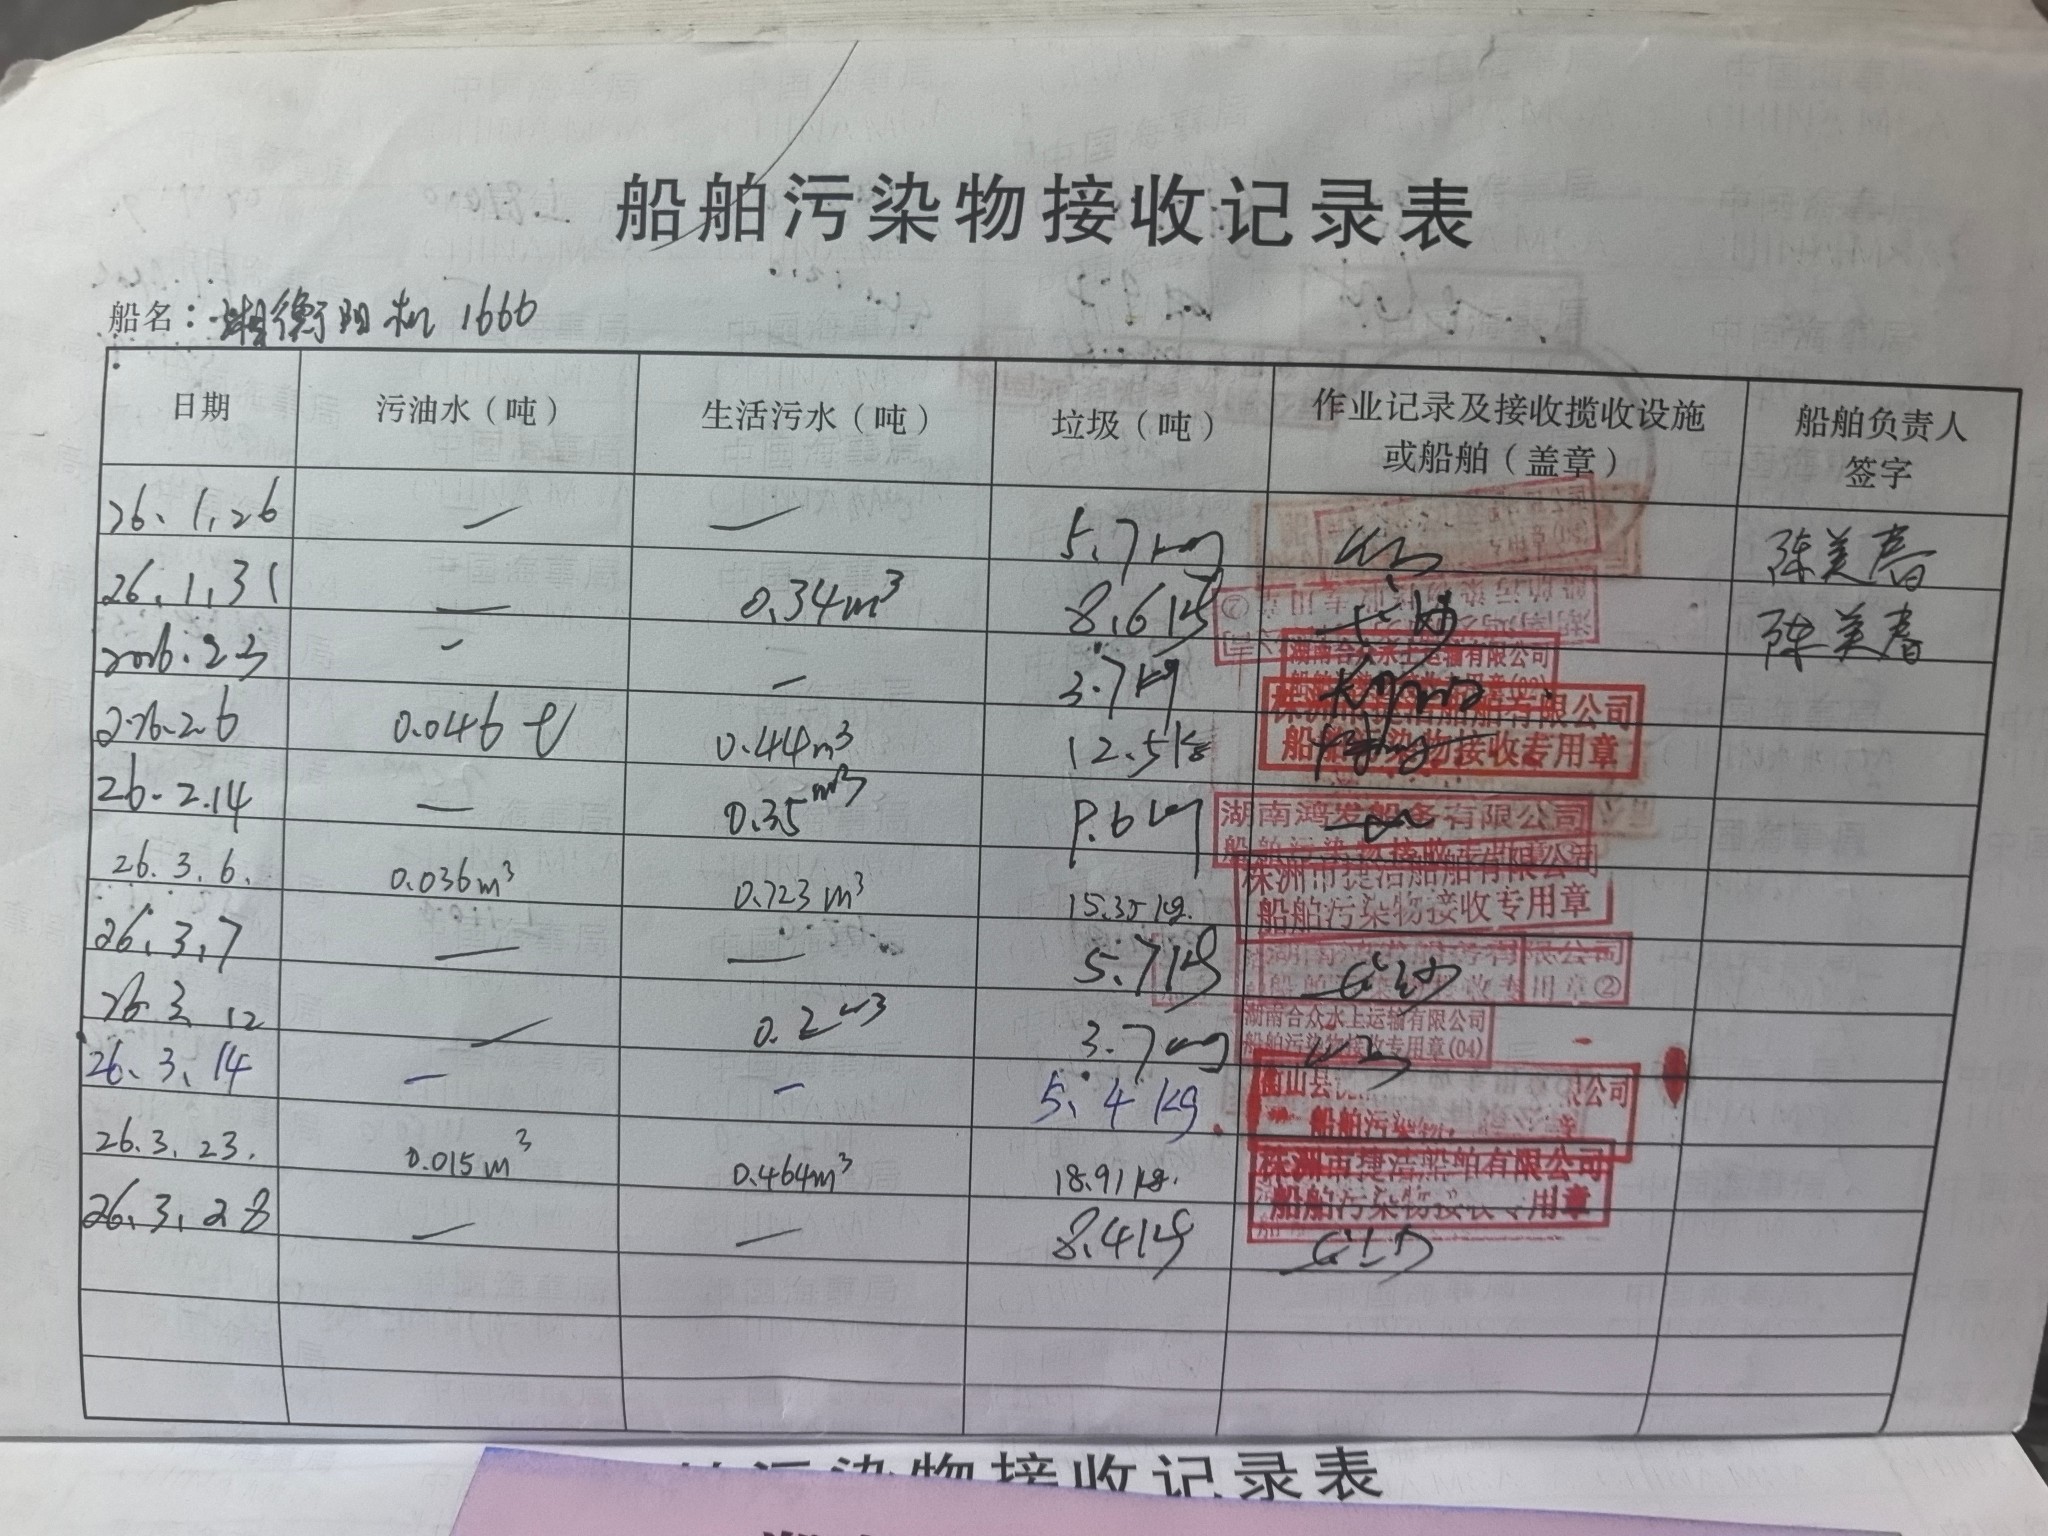 船舶污染物接收记录表
船名：湘衡阳机 1666
日期 污油水（吨） 生活污水（吨） 垃圾（吨） 作业记录及接收揽收设施或船舶（盖章） 船舶负责人签字
26.1.26 — — 5.7kg 陈美春
26.1.31 — 0.34m³ 8.6kg 陈美春
2026.2.3 — — 3.7kg 湖南合众水上运输有限公司
26.2.6 0.046 0.44m³ 12.5kg 株洲市捷洁船舶有限公司 船舶污染物接收专用章
26.2.14 — 0.35m³ 9.6kg 湖南鸿发船务有限公司 船舶污染物接收专用章
26.3.6. 0.036m³ 0.723m³ 15.35kg. 株洲市捷洁船舶有限公司 船舶污染物接收专用章
26.3.7 — — 5.7kg 湖南鸿发船务有限公司 船舶污染物接收专用章②
26.3.12 — 0.2m³ 3.7kg 湖南合众水上运输有限公司 船舶污染物接收专用章(04)
26.3.14 — — 5.4kg 衡山县 公司 船舶污染物
26.3.23. 0.015m³ 0.464m³ 18.91kg. 株洲市捷洁船舶有限公司 船舶污染物接收专用章
26.3.28 — — 8.4kg
污染物接收记录表